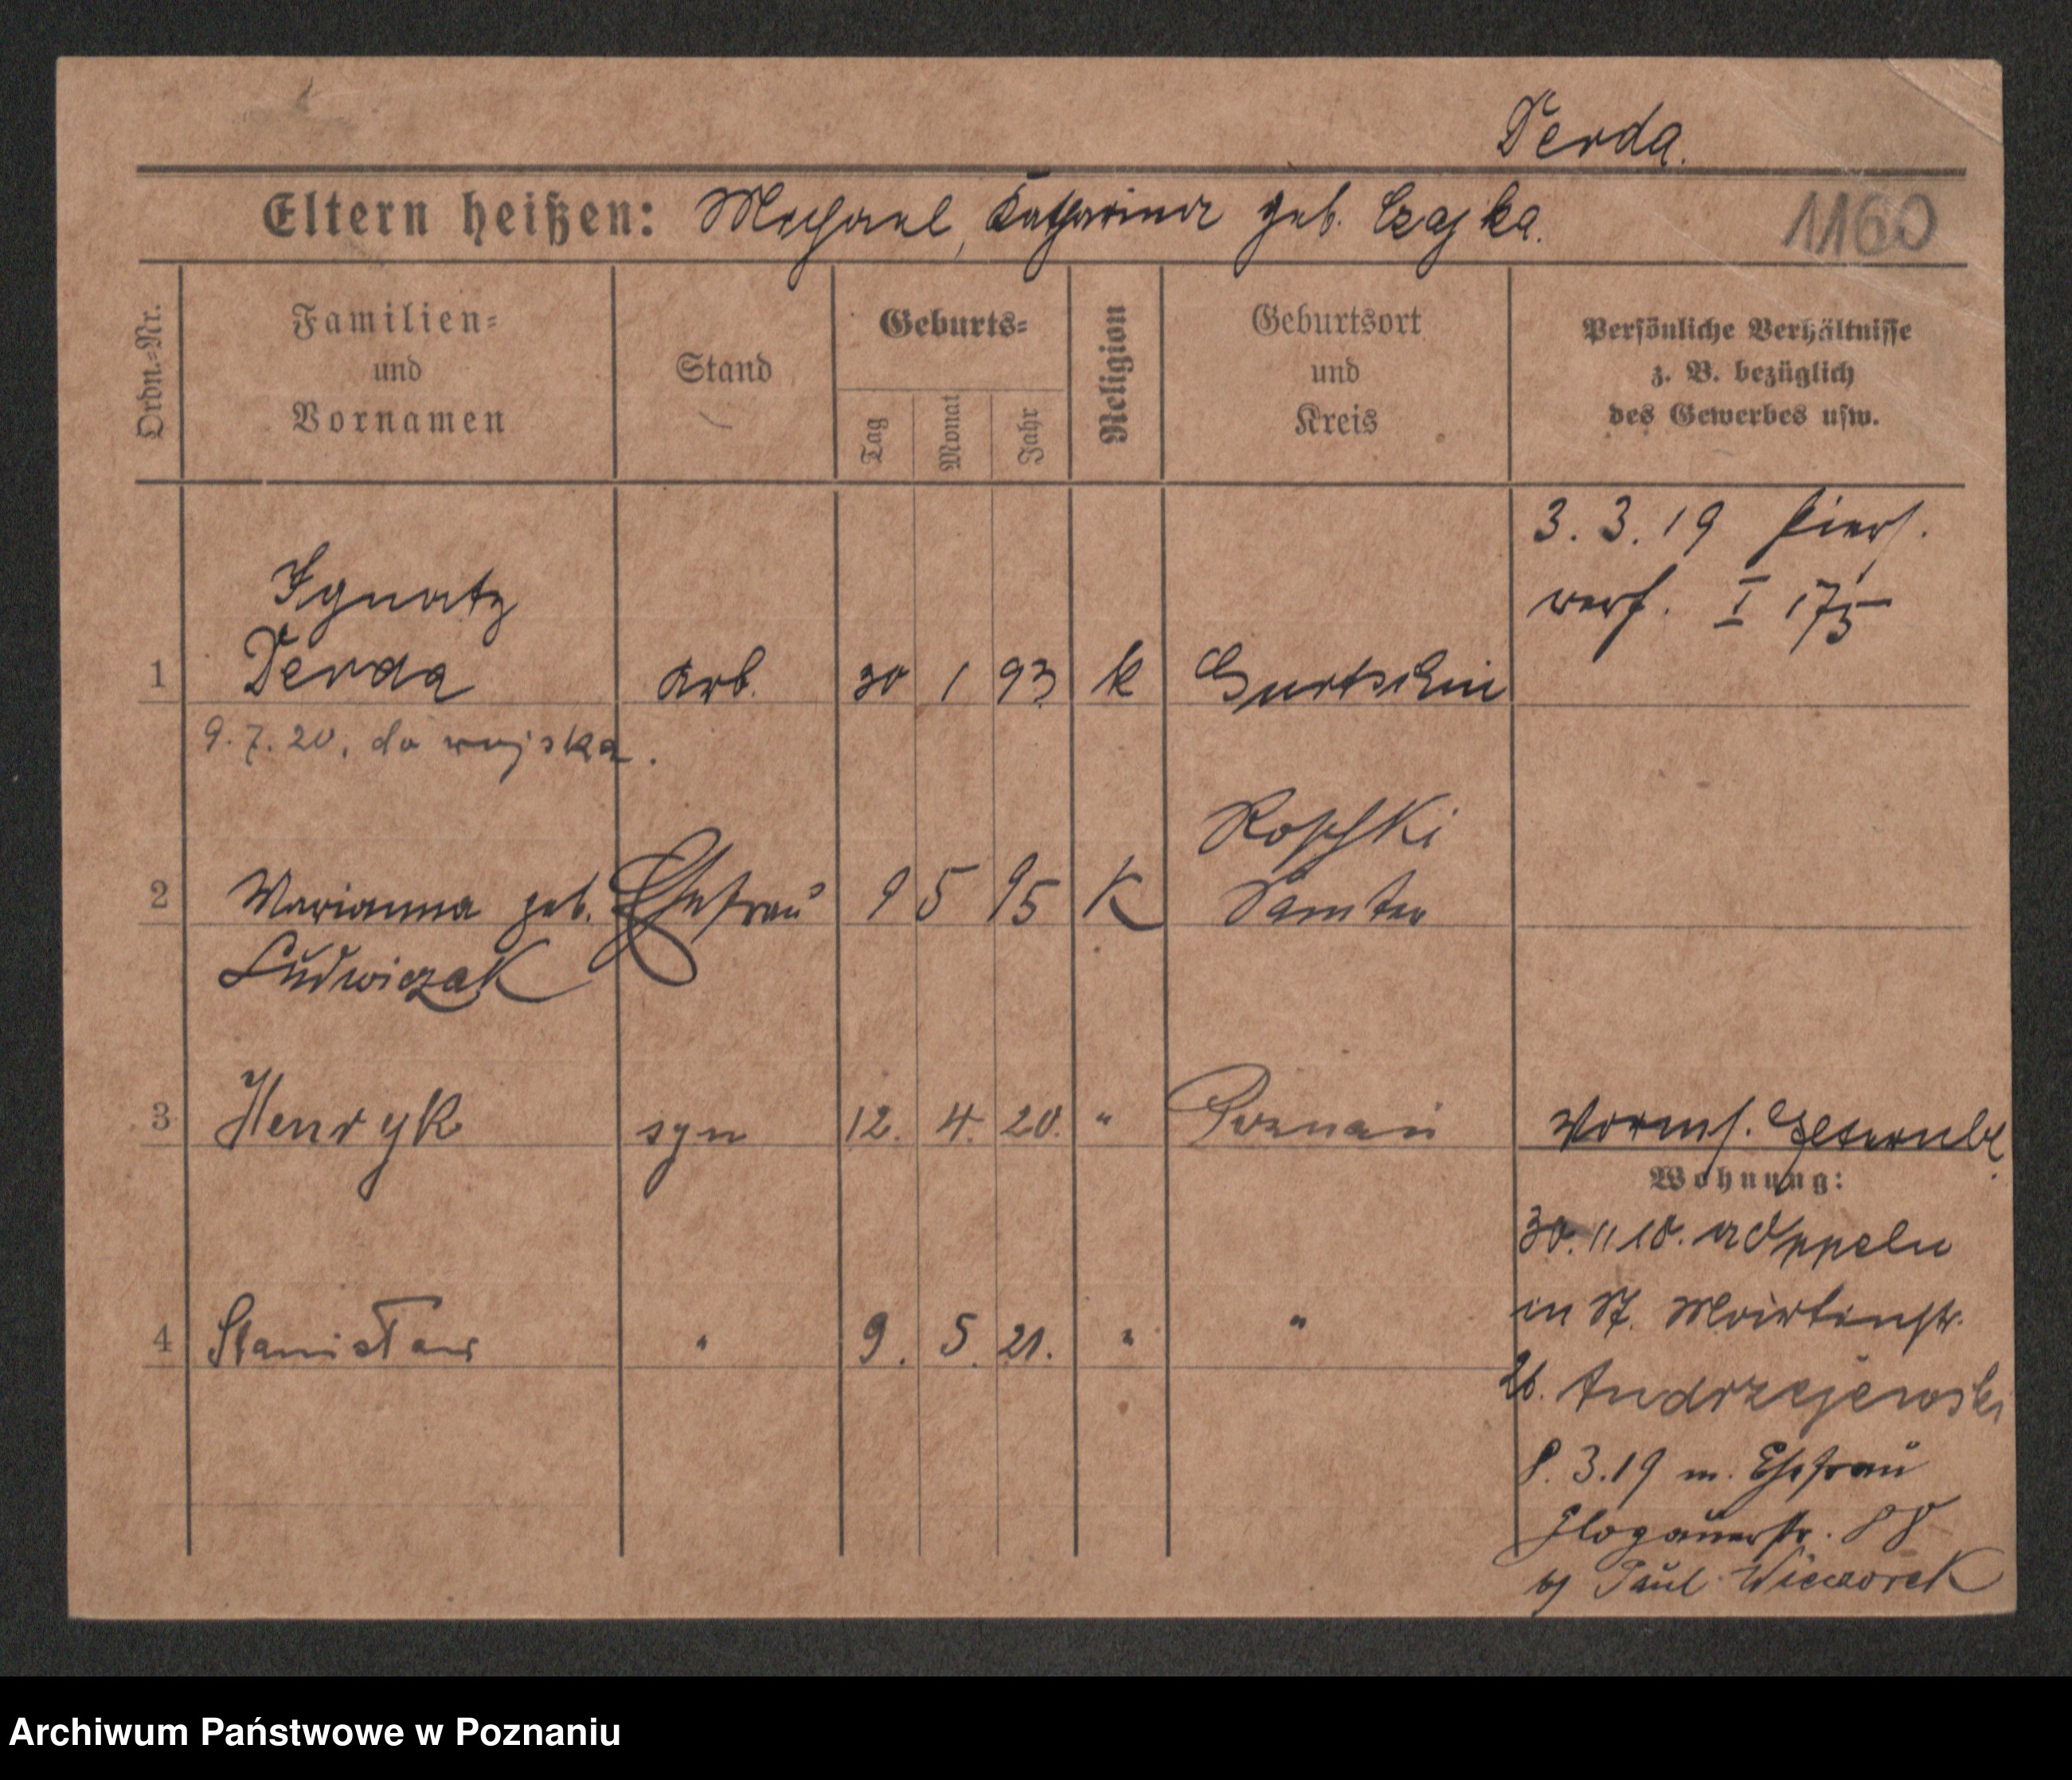 Derda.
Eltern heißen: Michael, Katharina geb. Czajka.
1160
Ordn.-Nr.
Familien-
und
Vornamen
Stand
Geburts-
Tag
Monat
Jahr
Religion
Geburtsort
und
Kreis
Persönliche Verhältnisse
z. B. bezüglich
des Gewerbes usw.
3. 3. 19
I 175
Ignatz
1 Derda Arb. 30 1 93 k Gurtschin
9. 7. 20. do wojska.
Roschki
2 Marianna geb. Ehefrau 9 5 95 K Samter
Ludwiczak
3 Henryk syn 12. 4. 20. " Poznań
Wohnung:
30. 11 18. a Oppeln
in St. Martinstr.
4 Stanisław " 9. 5. 21. " "
26. Andrzejewski
8. 3. 19 m. Ehefrau
Glogauerstr. 88
by Paul Wieczorek
Archiwum Państwowe w Poznaniu